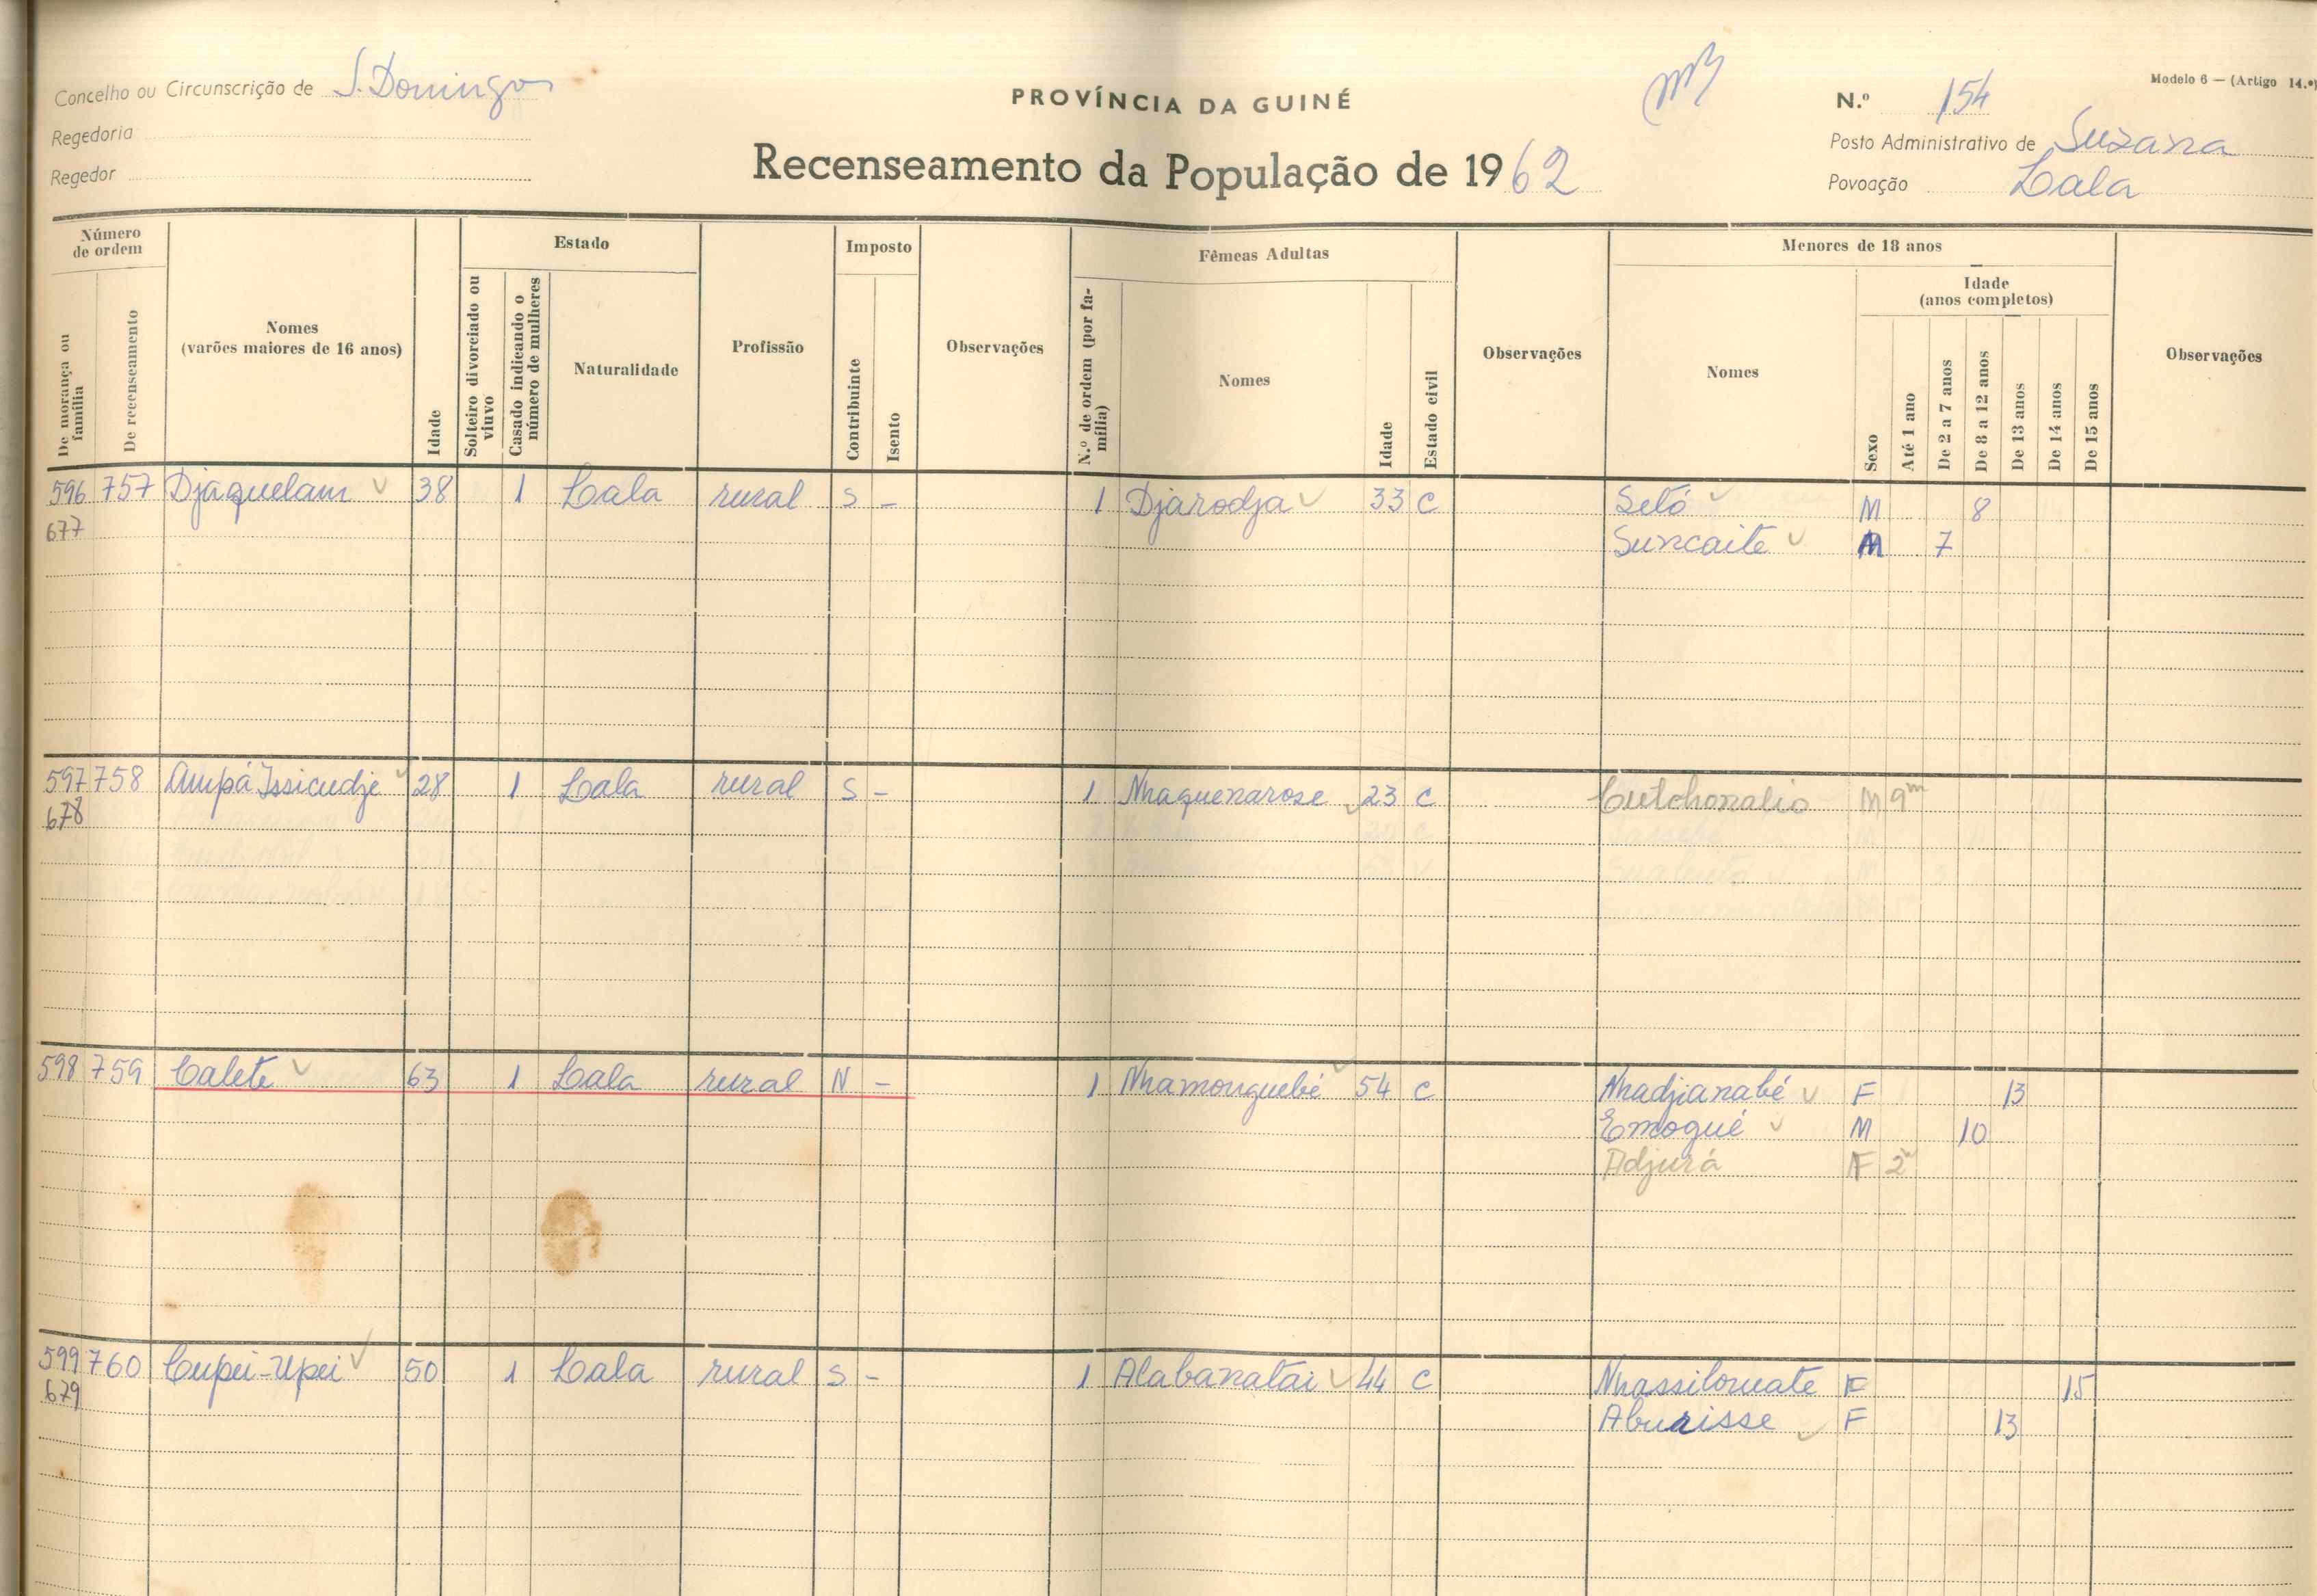 Concelho ou Circunscrição de S. Domingos
Regedoria
Regedor
PROVÍNCIA DA GUINÉ
Recenseamento da População de 1962
Modelo 6 — (Artigo 14.º)
N.º 154
Posto Administrativo de Suzana
Povoação Lala
Número de ordem
De morança ou família
De recenseamento
Nomes
(varões maiores de 16 anos)
Idade
Estado
Solteiro divorciado ou viuvo
Casado indicando o número de mulheres
Naturalidade
Profissão
Imposto
Contribuinte
Isento
Observações
Fêmeas Adultas
N.º de ordem (por família)
Nomes
Idade
Estado civil
Observações
Menores de 18 anos
Nomes
Sexo
Idade
(anos completos)
Até 1 ano
De 2 a 7 anos
De 8 a 12 anos
De 13 anos
De 14 anos
De 15 anos
Observações
596 757 Djaquelam 38 1 Lala rural S - 1 Djarodja 33 C Setó M 8
677 Suncaite M 7
597 758 Ampá Issicudje 28 1 Lala rural S - 1 Nhaquenarose 23 C Cutchonalio M 9m
678
598 759 Calete 63 1 Lala rural N - 1 Nhamonguebé 54 C Nhadjianabé F 13
Emogué M 10
Adjurá F 2
599 760 Cupei-Upei 50 1 Lala rural S - 1 Alabanatai 44 C Nhassilomate F 15
679 Aburisse F 13